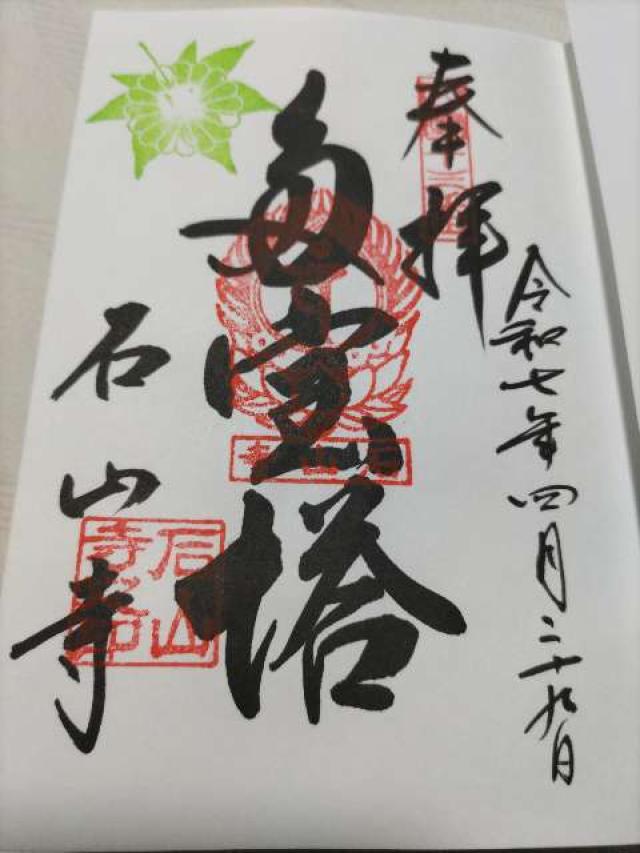 奉拝
令和七年四月二十九日
多宝塔
石山寺
石山